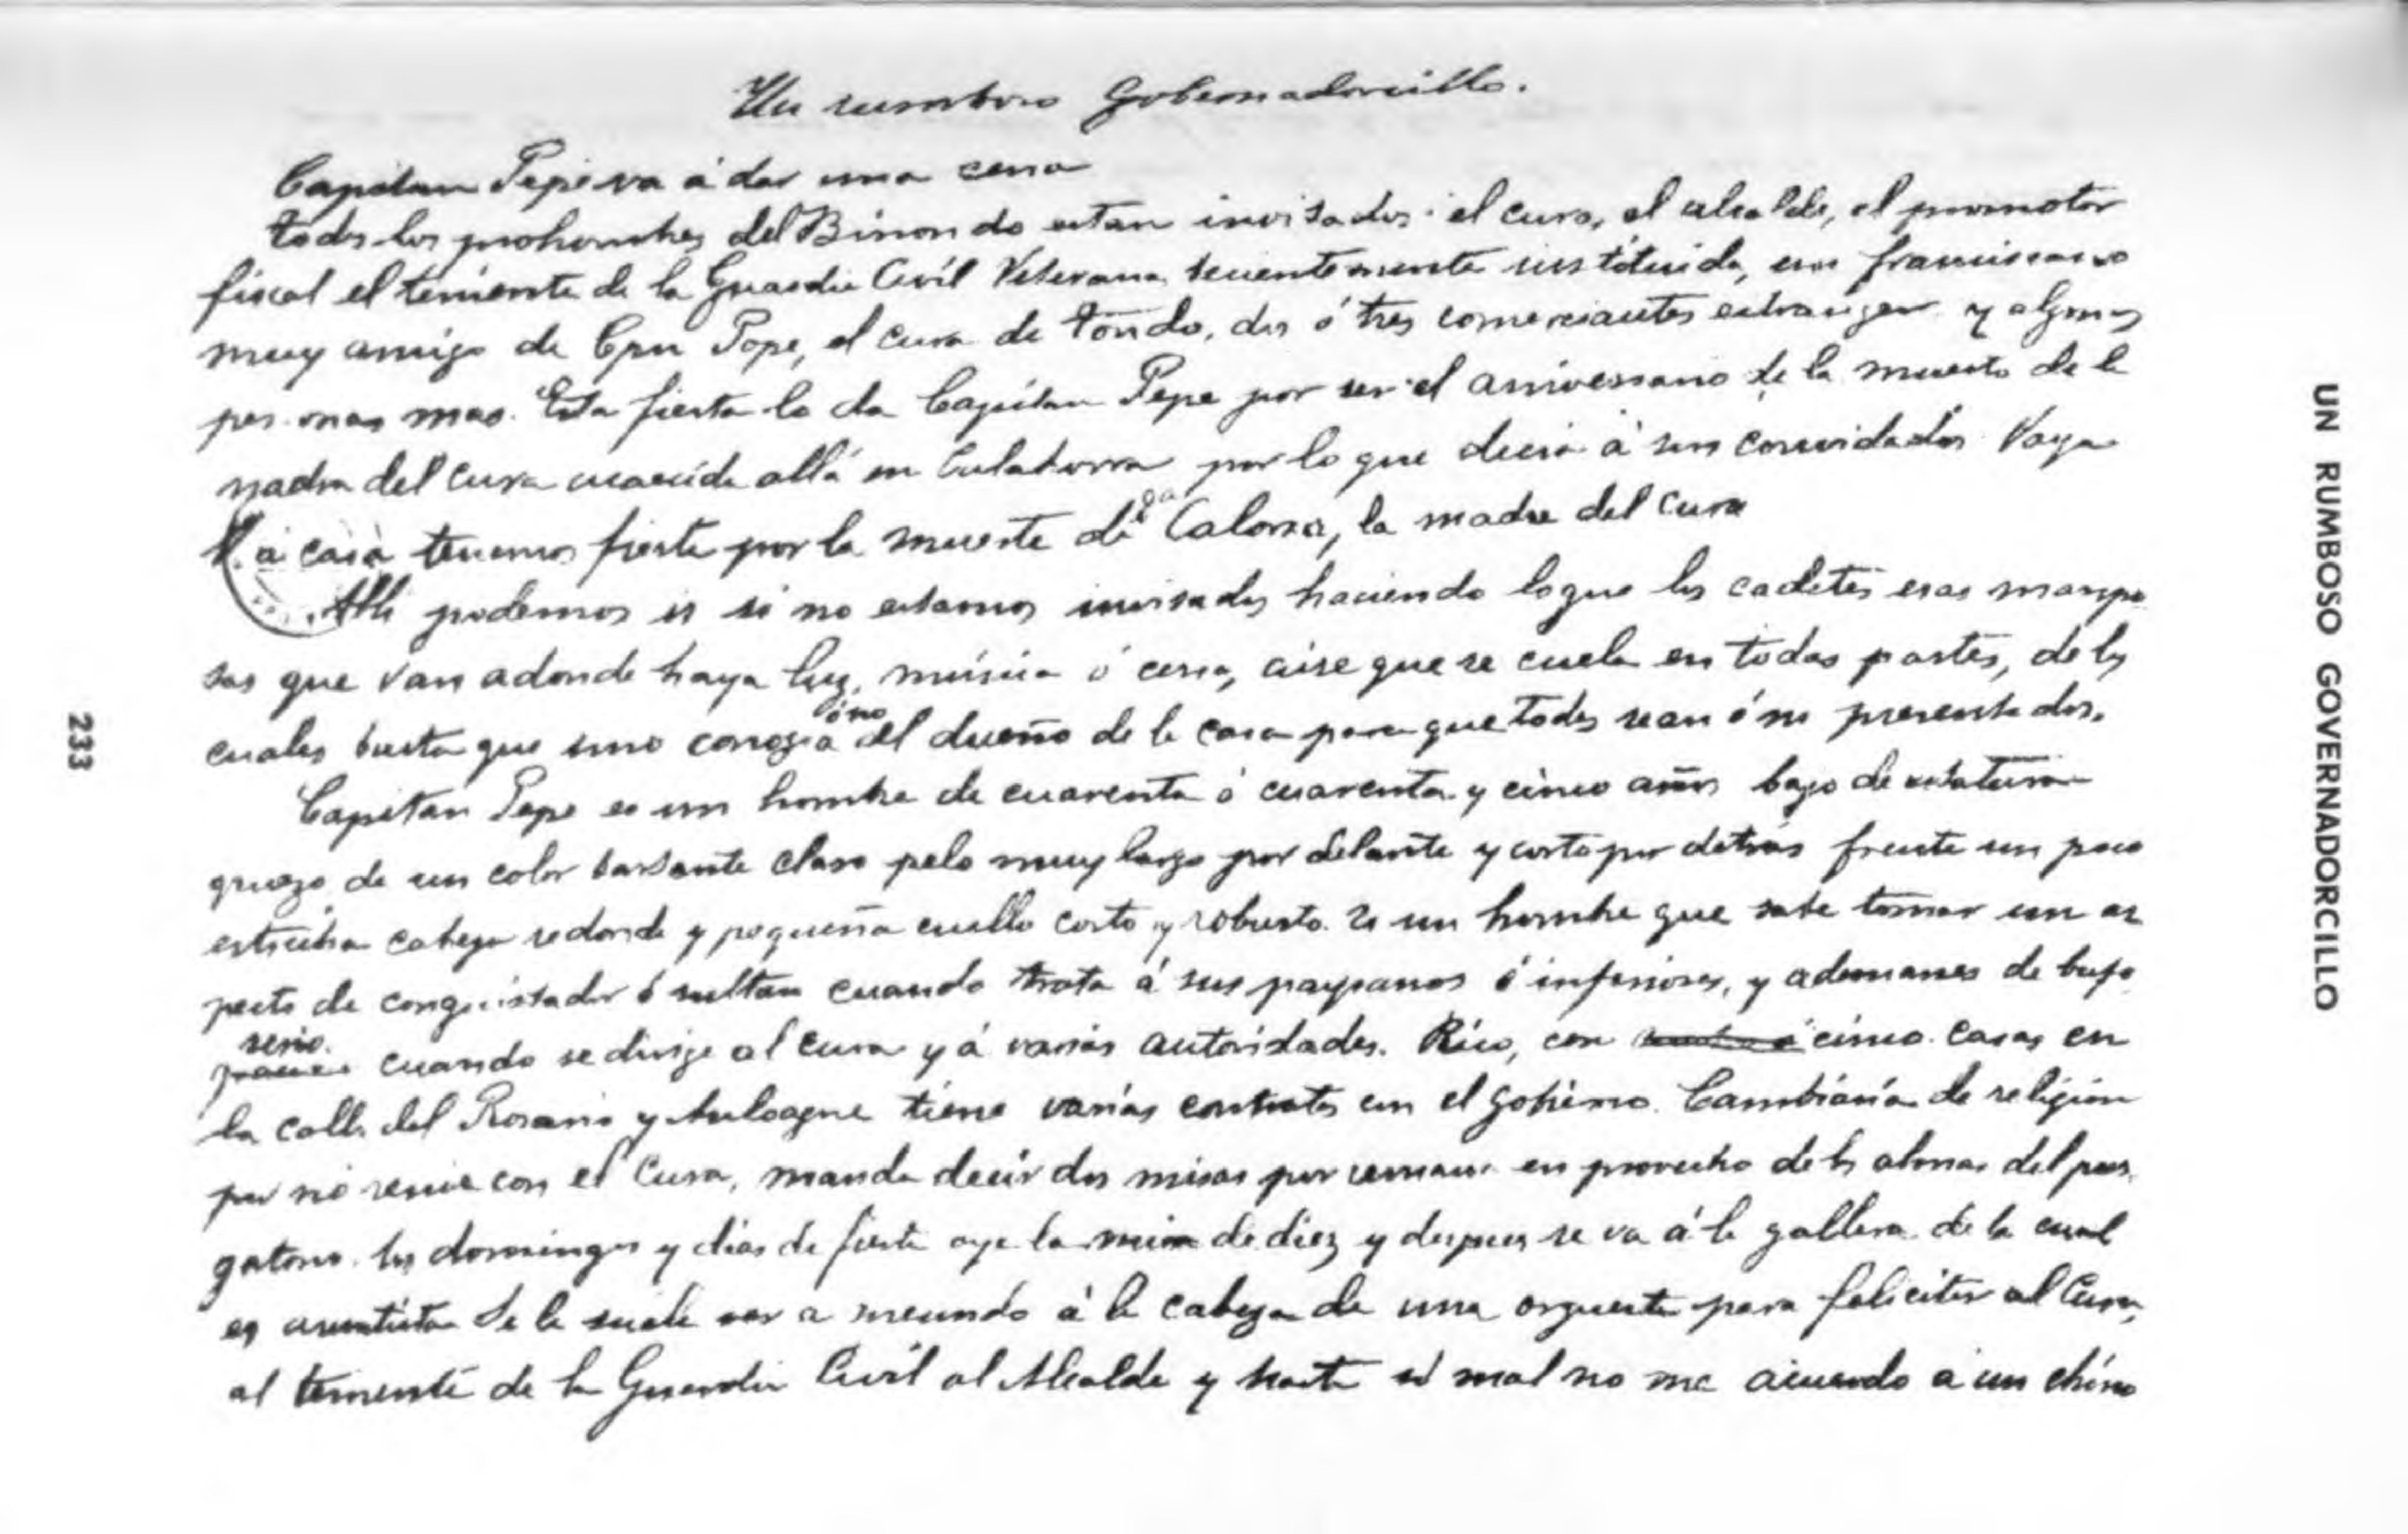 Un rumboso Gobernadorcillo.
Capitan Pepe va á dar una cena
todos los prohombres del Binondo estan invitados: el cura, el alcalde, el promotor
fiscal el teniente de la Guardia Civil Veterana recientemente instituida, un franciscano
muy amigo de Cpn Pepe, el cura de Tondo, dos ó tres comerciantes estrangeros y algunas
personas mas. Esta fiesta la da Capitan Pepe por ser el aniversario de la muerte de la
madre del cura allá en por lo que decia á sus convidados Vaya
V. á casa tenemos fiesta por la muerte de Da Calonia, la madre del Cura
Alli podemos ir si no estamos invitados haciendo lo que los cadetes esas maripo
sas que van adonde haya luz, música ó cena, aire que se cuela en todas partes, de los
cuales basta que uno conozca ó no al dueño de la casa para que todos sean ó no presentados.
Capitan Pepe es un hombre de cuarenta ó cuarenta y cinco años bajo de estatura
grueso de un color bastante claro pelo muy largo por delante y corto por detras frente un poco
estrecha cabeza redonda y pequeña cuello corto y robusto. Es un hombre que sabe tomar un as
pecto de conquistador ó sultan cuando trata á sus paysanos ó inferiores, y ademanes de bufo
serio cuando se dirige al cura y á varias autoridades. Rico, con cinco casas en
la calle del Rosario y Anloague tiene varias contratas con el gobierno. Cambiaria de religion
por no renir con el Cura, manda decir dos misas por semana en provecho de las almas del pur
gatorio. los domingos y dias de fiesta oye la misa de diez y despues se va á la gallera de la cual
es asentista Se le suele ver a menudo á la cabeza de una orquesta para felicitar al Cura,
al teniente de la Guardia Civil al Alcalde y hasta si mal no me acuerdo á un chino
233
UN RUMBOSO GOVERNADORCILLO